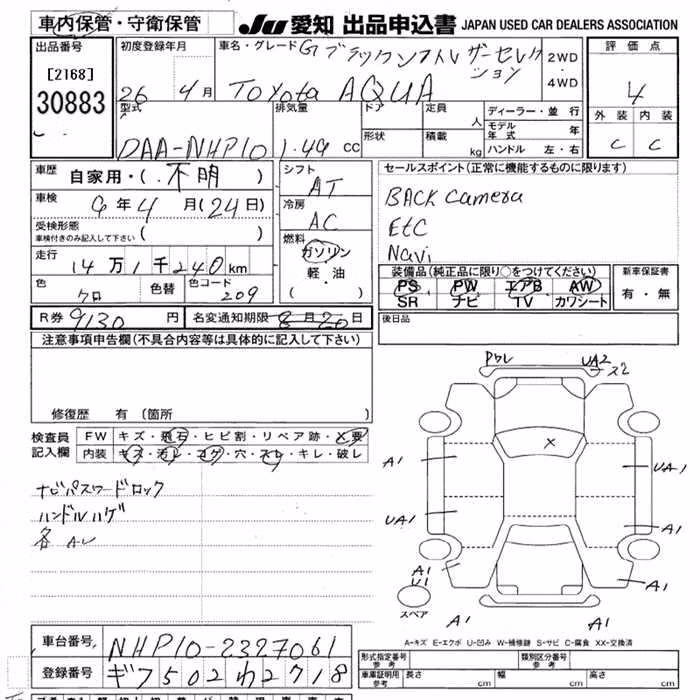 車内保管・守衛保管
JU 愛知 出品申込書 JAPAN USED CAR DEALERS ASSOCIATION
出品番号
[2168]
30883
初度登録年月
26 4月
車名・グレード Gブラックソフトレザーセレクション
Toyota AQUA
2WD
・
4WD
評価点
4
外装 内装
C C
型式
DAA-NHP10
排気量
1.49 cc
ドア
形状
定員 人
積載 kg
ディーラー・並行
モデル年式 年
ハンドル 左・右
車歴
自家用・(不明)
車検
9年4月(24日)
受検形態
車検付きのみ記入して下さい ( )
走行
14万1千240km
色
クロ
色替
色コード
209
シフト
AT
冷房
AC
燃料
ガソリン
軽・油
( )
セールスポイント(正常に機能するものに限ります)
BACK camera
EtC
Navi
装備品(純正品に限り○をつけてください)
PS PW エアB AW
SR ナビ TV カワシート
新車保証書
有・無
R券 9130円
名変通知期限 8月20日
後日品
注意事項申告欄(不具合内容等は具体的に記入して下さい)
修復歴 有(箇所 )
検査員記入欄
FW キズ・飛石・ヒビ割・リペア跡・X要
内装 キズ・汚レ・コゲ・穴・スレ・キレ・破レ
ナビパスワードロック
ハンドルハゲ
各
PワレUA2
ス2
X
A1
UA1
UA1
A1
A1
U1
A1
A1
A1
A1
スペア
A-キズ E-エクボ U-凹み W-補修跡 S-サビ C-腐食 XX-交換済
車台番号 NHP10-2327061
登録番号 ギフ502わ2718
形式指定番号 参考
類別区分番号 参考
車庫証明用 参考
長さ cm
幅 cm
高さ cm